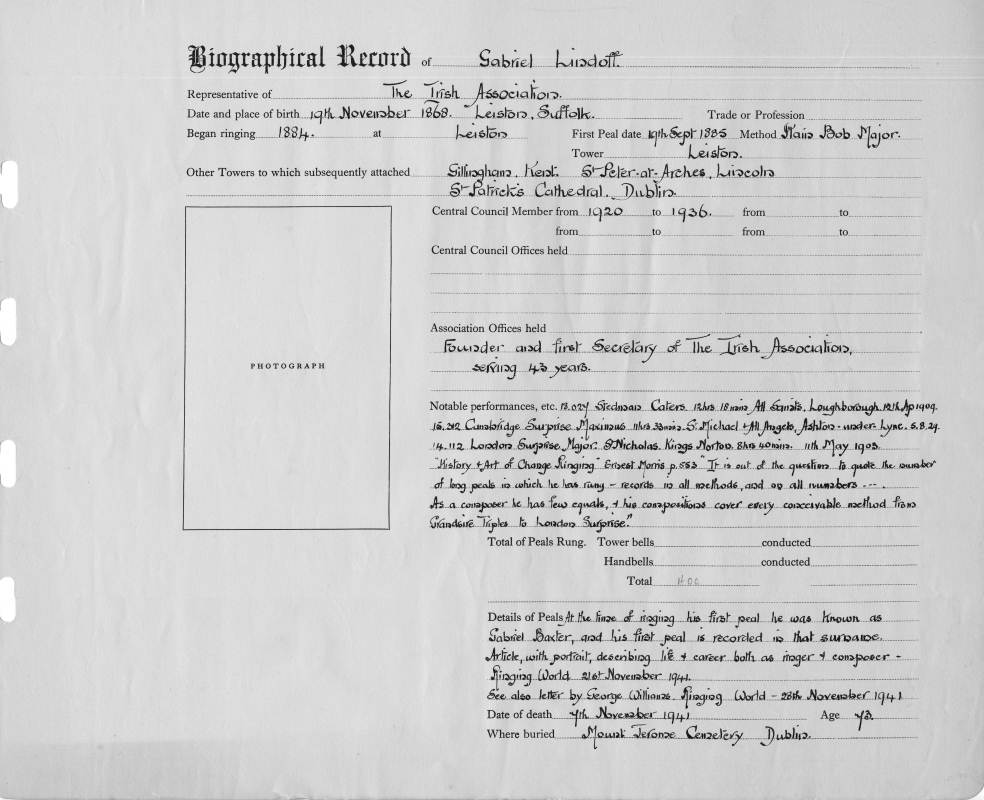 Biographical Record of Gabriel Lindoff.
Representative of The Irish Association.
Date and place of birth 19th November 1868. Leiston, Suffolk. Trade or Profession
Began ringing 1884. at Leiston First Peal date 19th Sept 1885 Method Plain Bob Major.
Tower Leiston.
Other Towers to which subsequently attached Gillingham, Kent. St Peter-at-Arches, Lincoln
St Patrick's Cathedral, Dublin.
Central Council Member from 1920 to 1936. from to
from to from to
Central Council Offices held
Association Offices held
Founder and first Secretary of The Irish Association,
serving 43 years.
PHOTOGRAPH
Notable performances, etc. 13.027 Stedman Caters. 12hrs 18mins All Saints, Loughborough. 12th Ap 1909.
15.312 Cambridge Surprise Maximus 11hrs 33mins. St Michael & All Angels, Ashton-under-Lyne. 5.8.29.
14.112 London Surprise Major. S. Nicholas. Kings Norton. 8hrs 40mins. 11th May 1903.
"History & Art of Change Ringing" Ernest Morris p. 553 "It is out of the question to quote the number
of long peals in which he has rung - records in all methods, and on all numbers ---.
As a composer he has few equals, & his compositions cover every conceivable method from
Grandsire Triples to London Surprise."
Total of Peals Rung. Tower bells conducted
Handbells conducted
Total 400
Details of Peals At the time of ringing his first peal he was known as
Gabriel Baxter, and his first peal is recorded in that surname.
Article, with portrait, describing life & career both as ringer & composer -
Ringing World 21st November 1941.
See also letter by George Williams. Ringing World - 28th November 1941
Date of death 7th November 1941 Age 73.
Where buried Mount Jerome Cemetery Dublin.